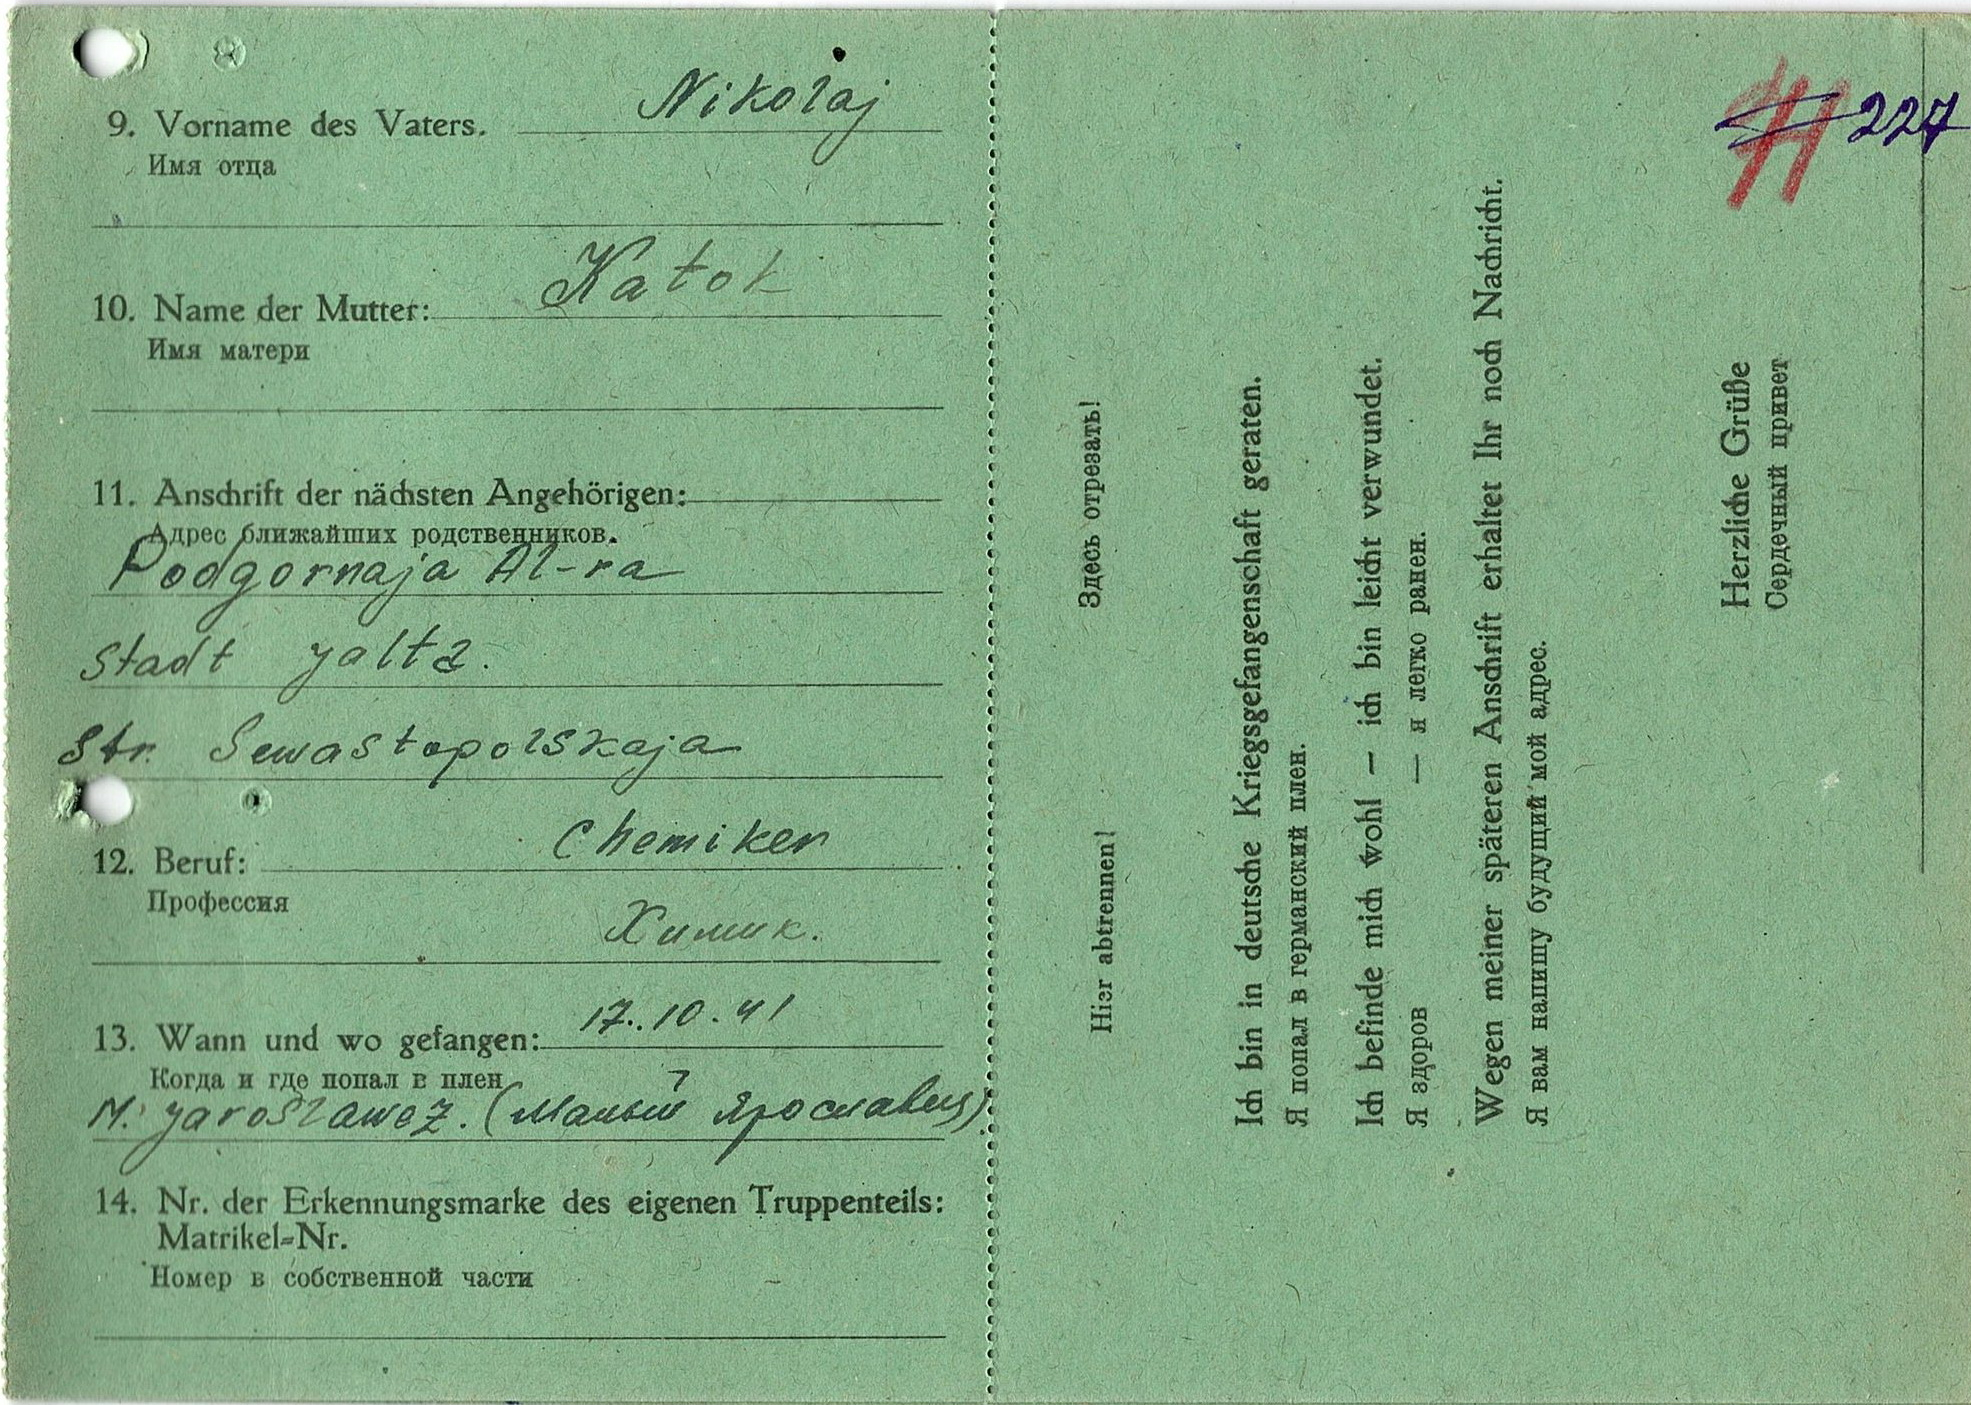 9. Vorname des Vaters. Nikolaj
Имя отца
10. Name der Mutter: Katok
Имя матери
11. Anschrift der nächsten Angehörigen:
Адрес ближайших родственников.
Podgornaja Al-ra
Stadt Jalta.
Str. Sewastopolskaja
12. Beruf: Chemiker
Профессия
Химик.
13. Wann und wo gefangen: 17.10.41
Когда и где попал в плен
M. Jaroslawez. (Малый Ярославец)
14. Nr. der Erkennungsmarke des eigenen Truppenteils:
Matrikel=Nr.
Номер в собственной части
Hier abtrennen! Здесь отрезать!
Ich bin in deutsche Kriegsgefangenschaft geraten.
Я попал в германский плен.
Ich befinde mich wohl — ich bin leicht verwundet.
Я здоров — я легко ранен.
Wegen meiner späteren Anschrift erhaltet Ihr noch Nachricht.
Я вам напишу будущий мой адрес.
Herzliche Grüße
Сердечный привет
227